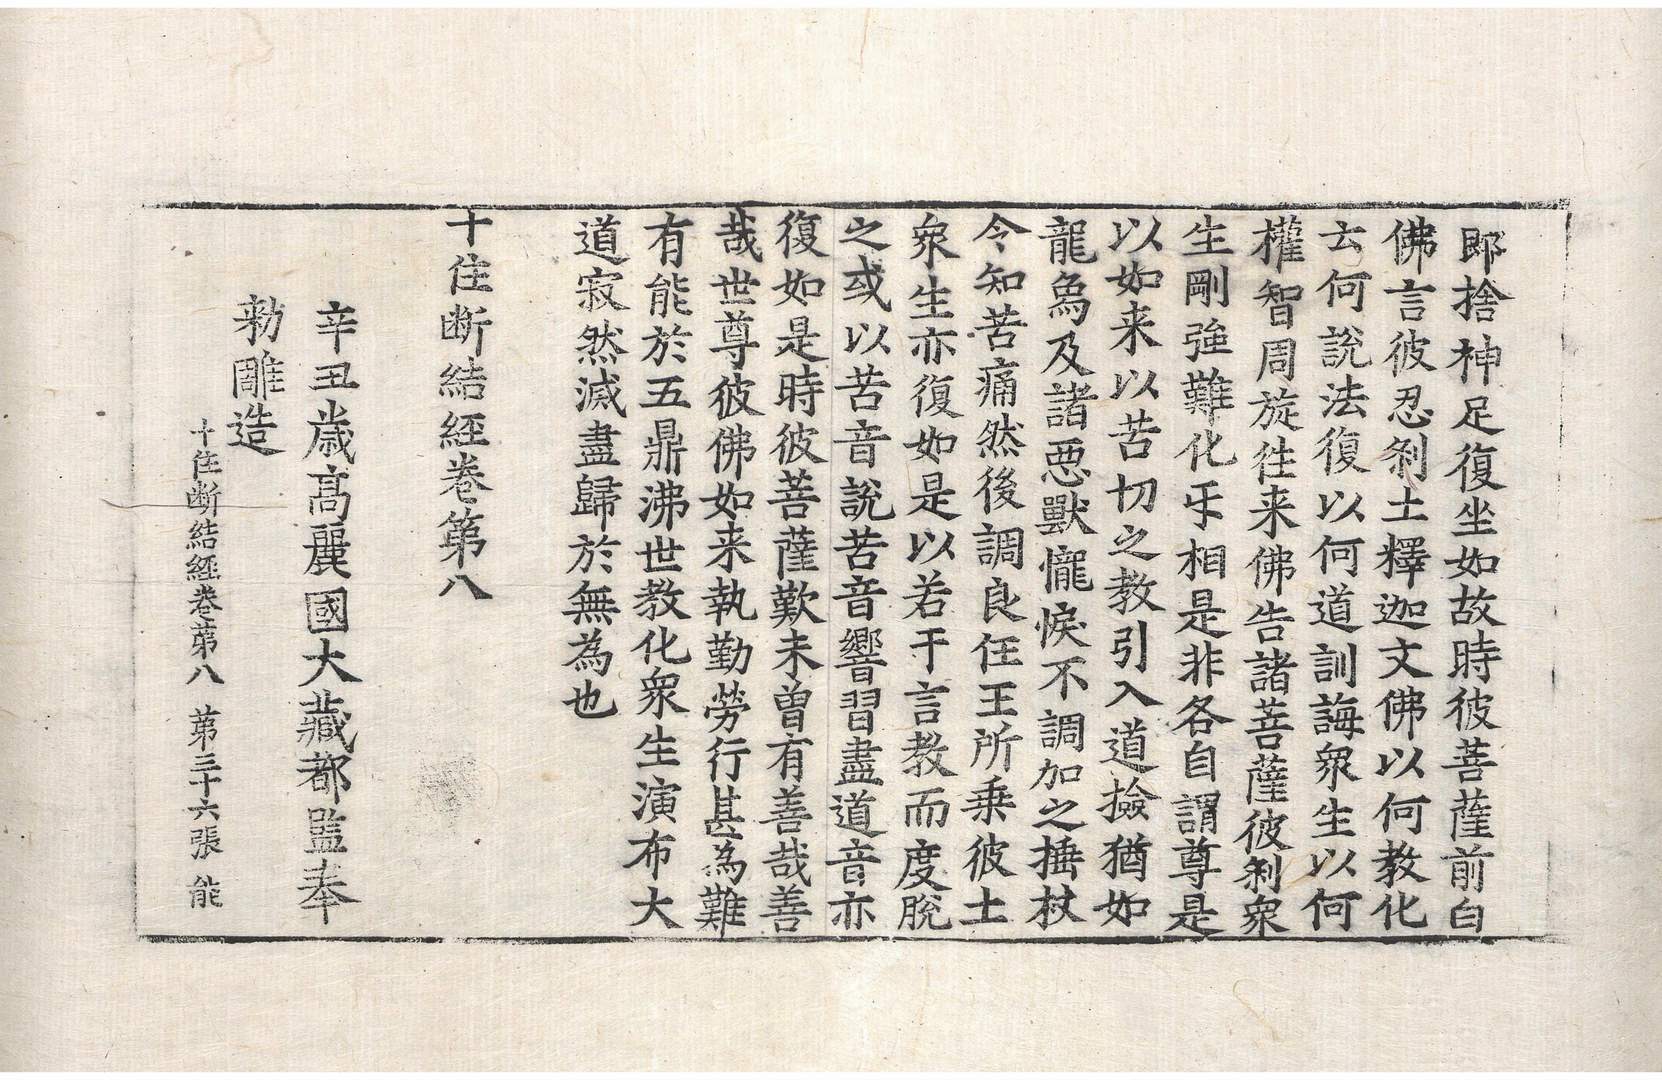 即捨神足復坐如故時彼菩薩前白
佛言彼忍刹土釋迦文佛以何教化
云何說法復以何道訓誨衆生以何
權智周旋往来佛告諸菩薩彼刹衆
生剛強難化乐相是非各自謂尊是
以如来以苦切之教引入道撿猶如
龍象及諸惡獸㦬悷不調加之捶杖
令知苦痛然後調良任王所乗彼土
衆生亦復如是以若干言教而度脫
之或以苦音說苦音響習盡道音亦
復如是時彼菩薩歎未曽有善哉善
哉世尊彼佛如来執勤勞行甚為難
有能於五鼎沸世教化衆生演布大
道寂然滅盡歸於無為也
十住断結経卷第八
辛丑歲高麗國大藏都監奉
勑雕造
十住断結経卷第八 第三十六張 能